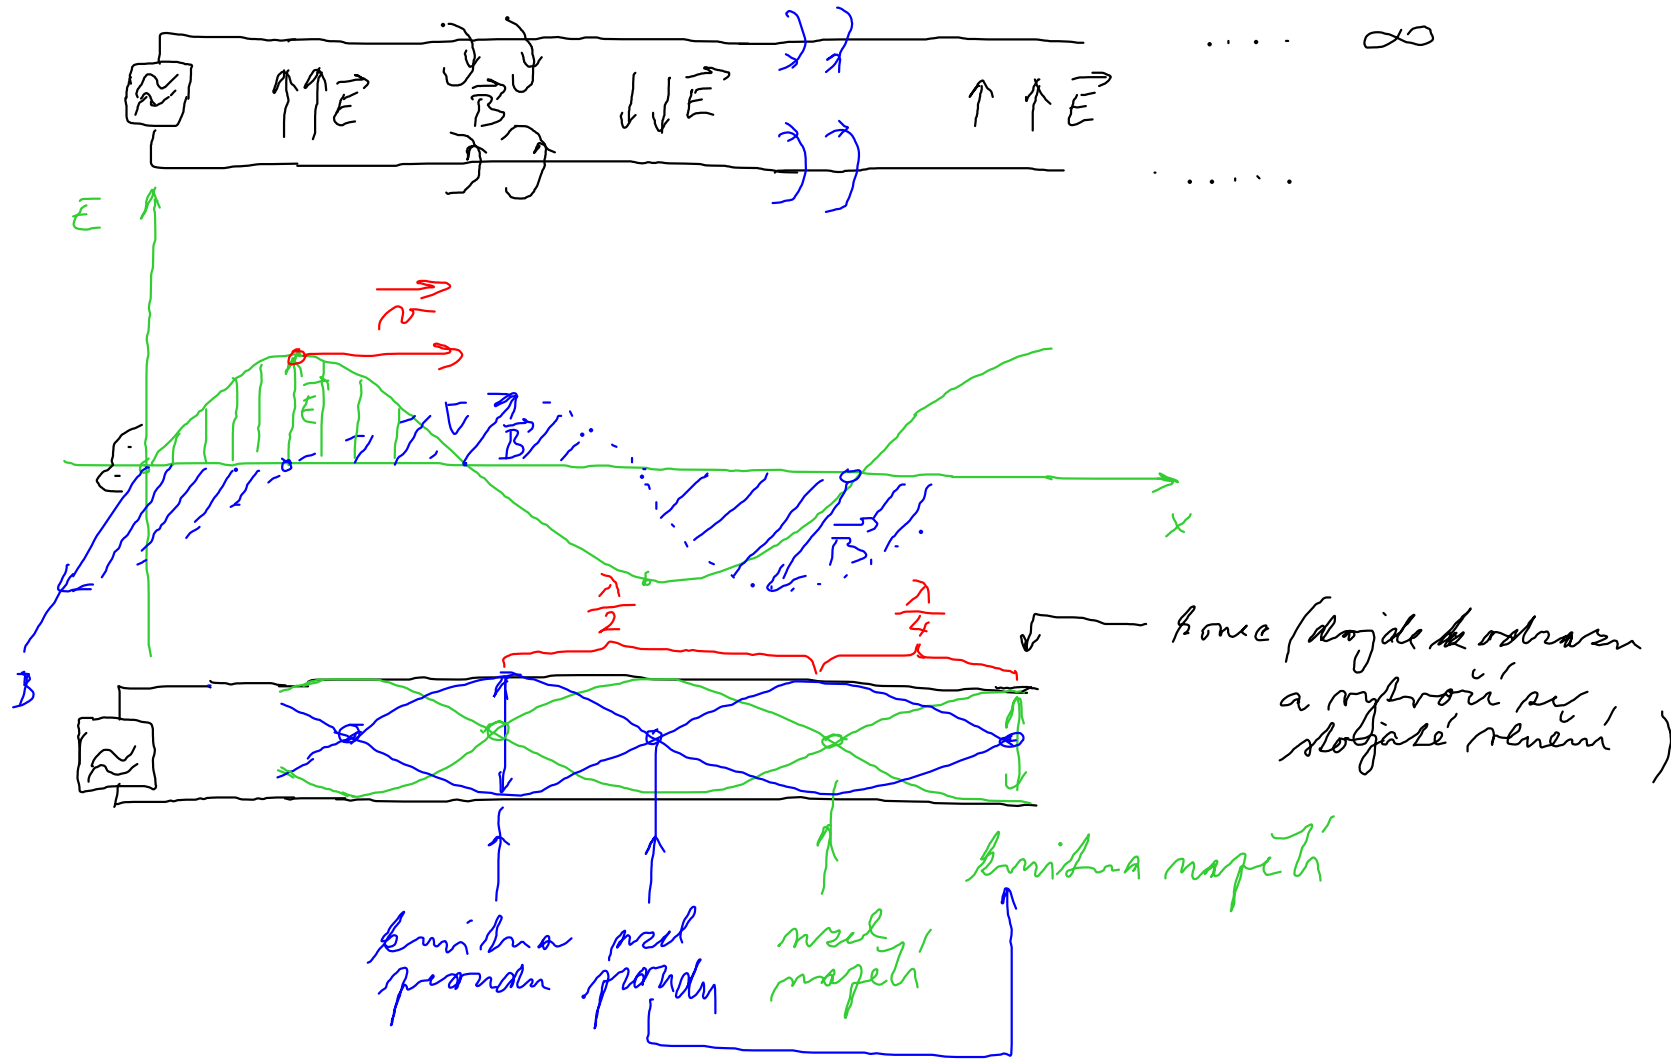 .... ∞
E⃗
B⃗
E⃗
E⃗
.....
E
v⃗
E⃗
B⃗
B⃗
x
B
λ/2
λ/4
konec (dojde k odrazu
a vytvoří se
stojaté vlnění)
kmitna napětí
kmitna
proudu
uzel
proudu
uzel
napětí